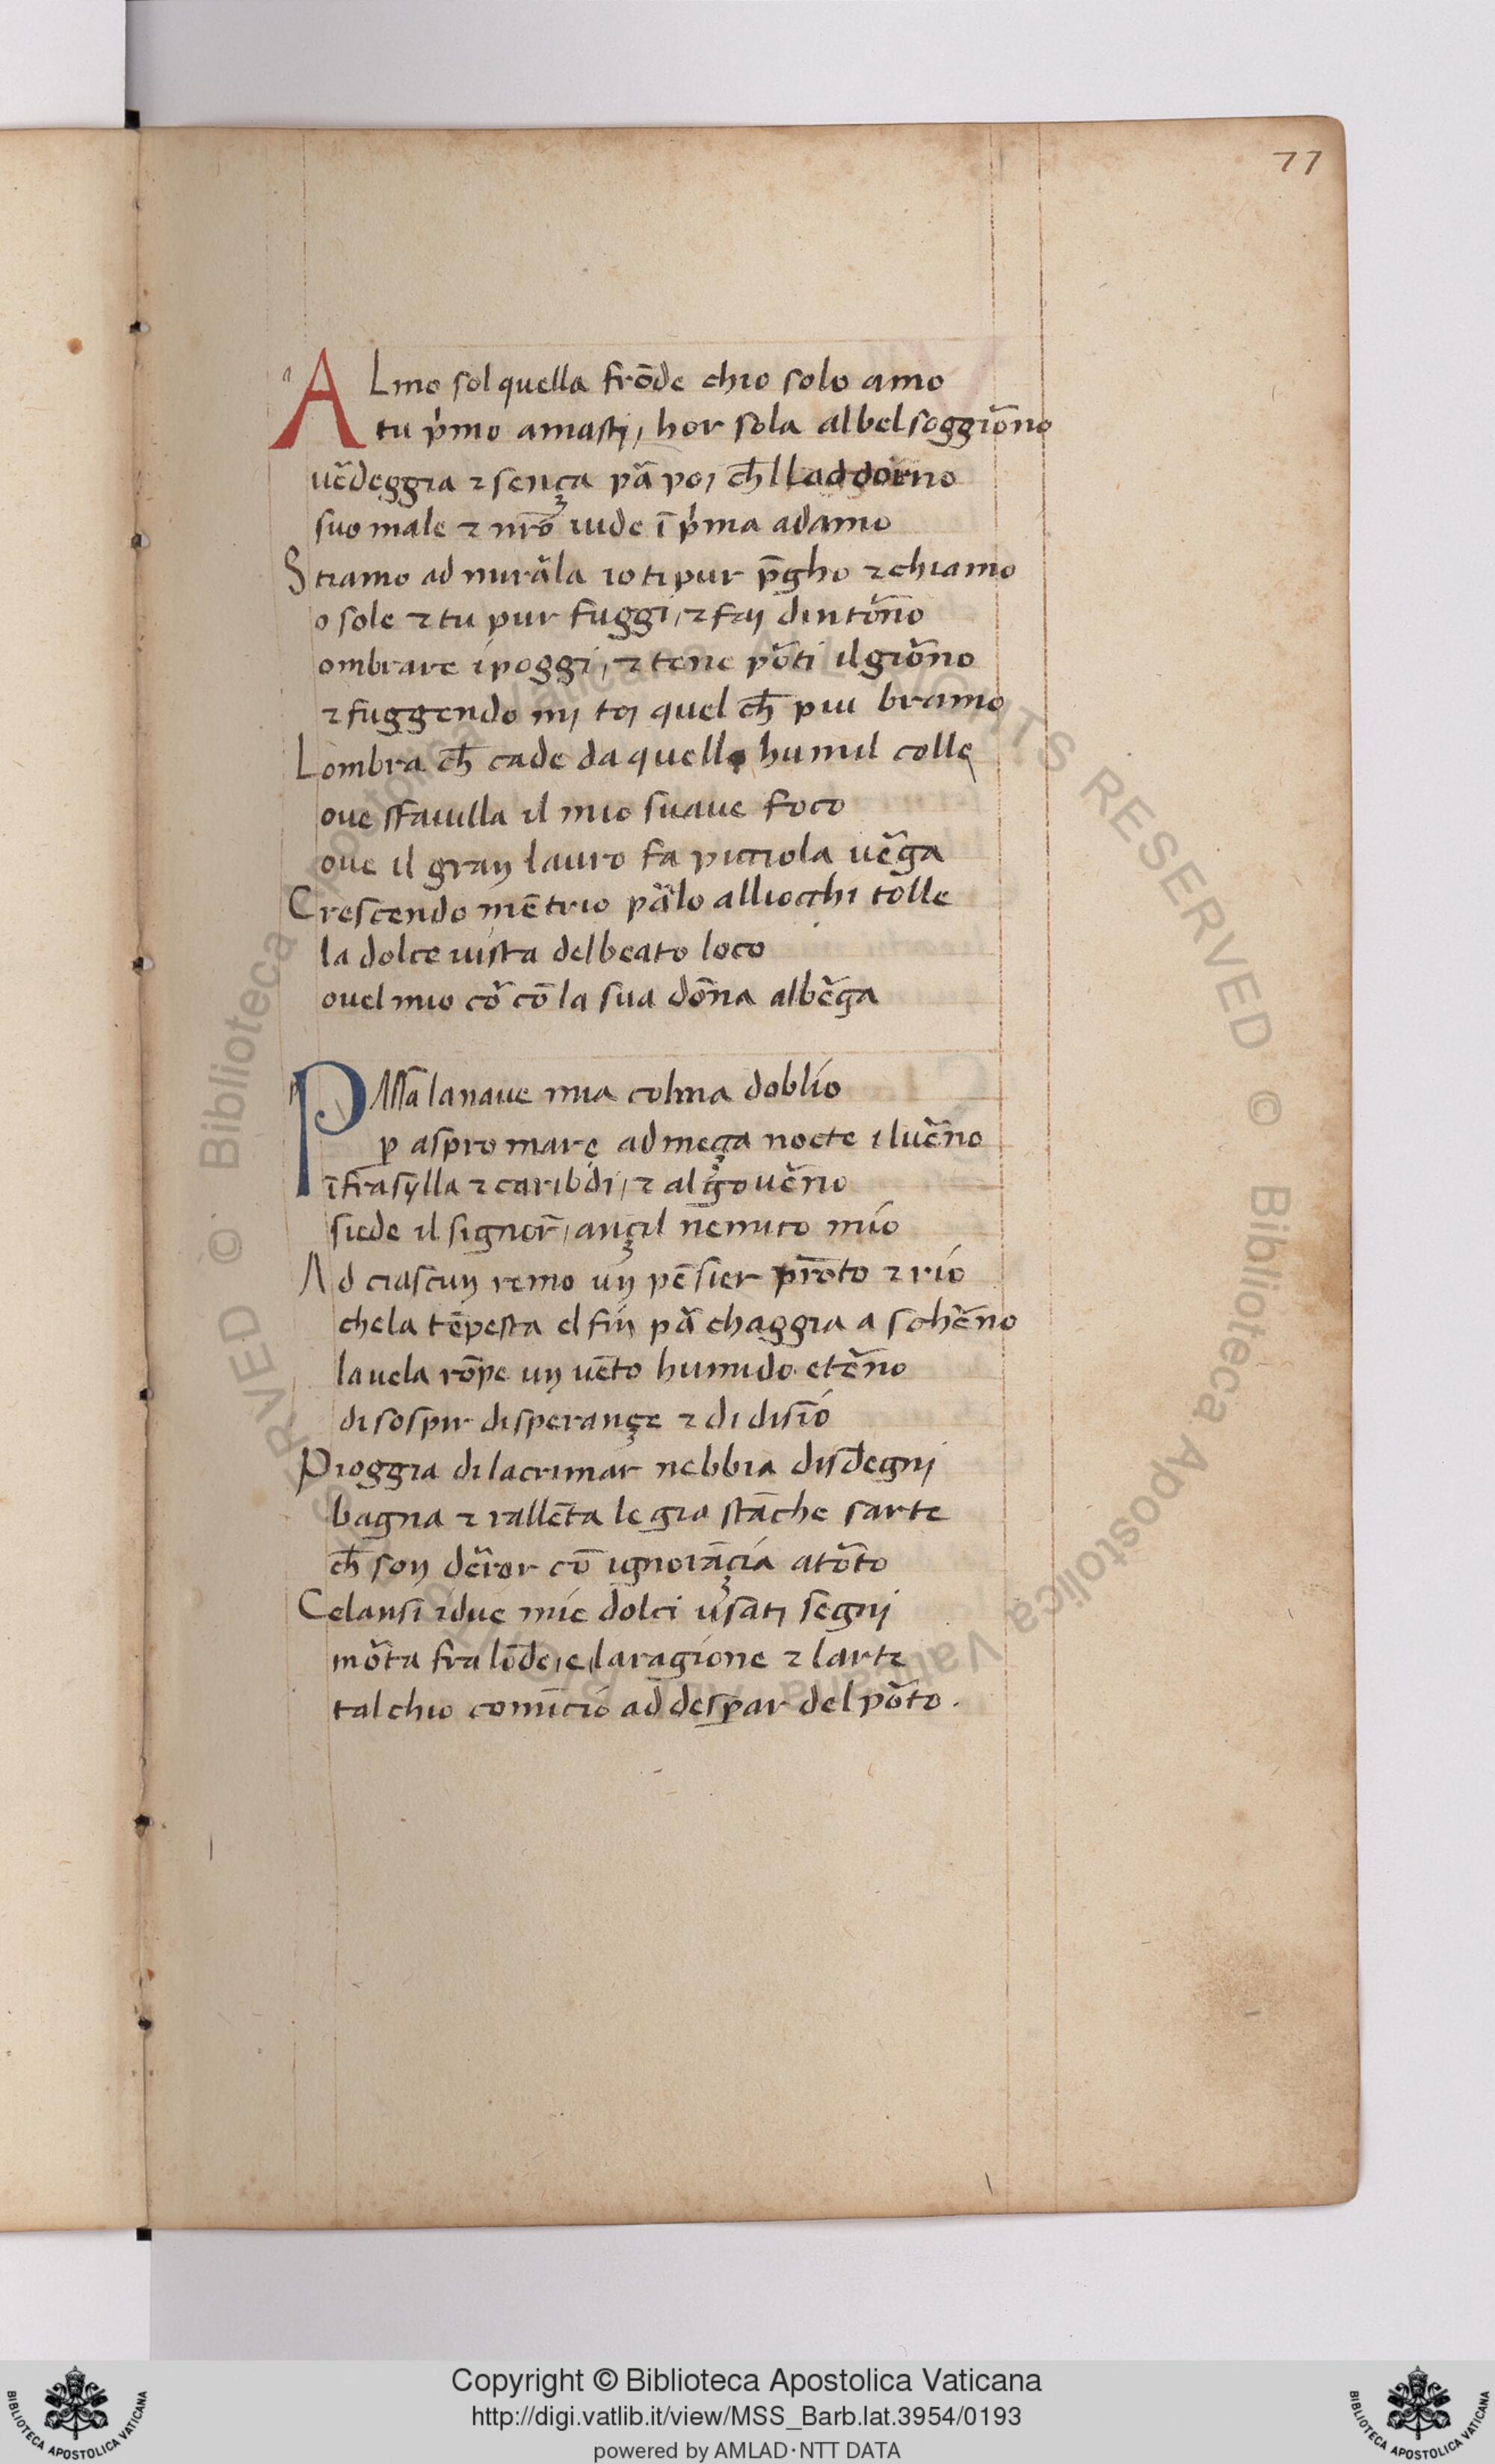 77
ALmo sol quella frōde chio solo amo
tu p̍mo amastj, hor sola albel soggiõno
ũdeggia ⁊ sença pã poj ch̄ lladdorno
suo male ⁊ nr̄o uide ī p̍ma adamo
Stiamo ad mirãla io ti pur p̄gho ⁊ chiamo
o sole ⁊ tu pur fuggi, ⁊ faj dintõno
ombrare i poggi, ⁊ tene põti il giõno
⁊ fuggendo mj toj quel ch̄ piu bramo
Lombra ch̄ cade da quello humil colle
oue sfauilla il mio suaue foco
oue il gran lauro fa picciola uẽga
Crescendo mētrio pãlo alliocchi tolle
la dolce uista del beato loco
ouel mio cõ cō la sua dōna albẽga
PAssa la naue mia colma doblio
ꝑ aspro mare ad meça nocte iluẽno
īfra sylla ⁊ caribdi, ⁊ al gouẽno
siede il signor, ançil nemico mio
Ad ciascun remo un pēsier prōto ⁊ rio
che la tēpesta el fin pã chaggia a schẽno
la uela rōpe un uēto humido etẽno
di sospir di sperançe ⁊ di disio
Pioggia di lacrimar nebbia disdegnj
bagna ⁊ rallēta le gia stāche sarte
ch̄ son dẽror cō ignorāçia atõto
Celansi idue mie dolci usati segnj
mõta fra lōde, e, la ragione ⁊ larte
tal chio comīcio ad desꝑar del põto.
Copyright © Biblioteca Apostolica Vaticana
http://digi.vatlib.it/view/MSS_Barb.lat.3954/0193
powered by AMLAD·NTT DATA